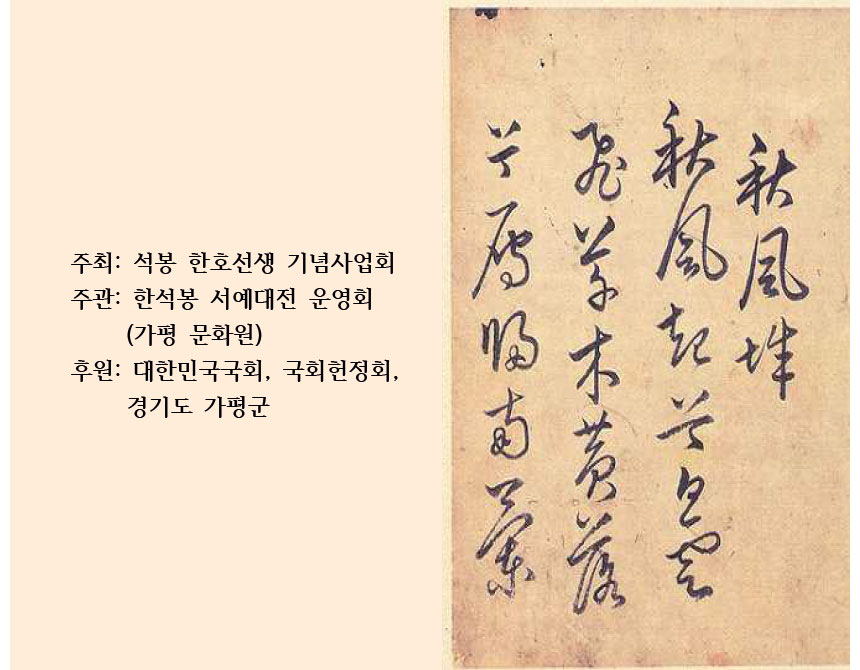 주최: 석봉 한호선생 기념사업회
주관: 한석봉 서예대전 운영회
(가평 문화원)
후원: 대한민국국회, 국회헌정회,
경기도 가평군
秋風辭
秋風起兮白雲
飛草木黃落
兮雁歸南蘭